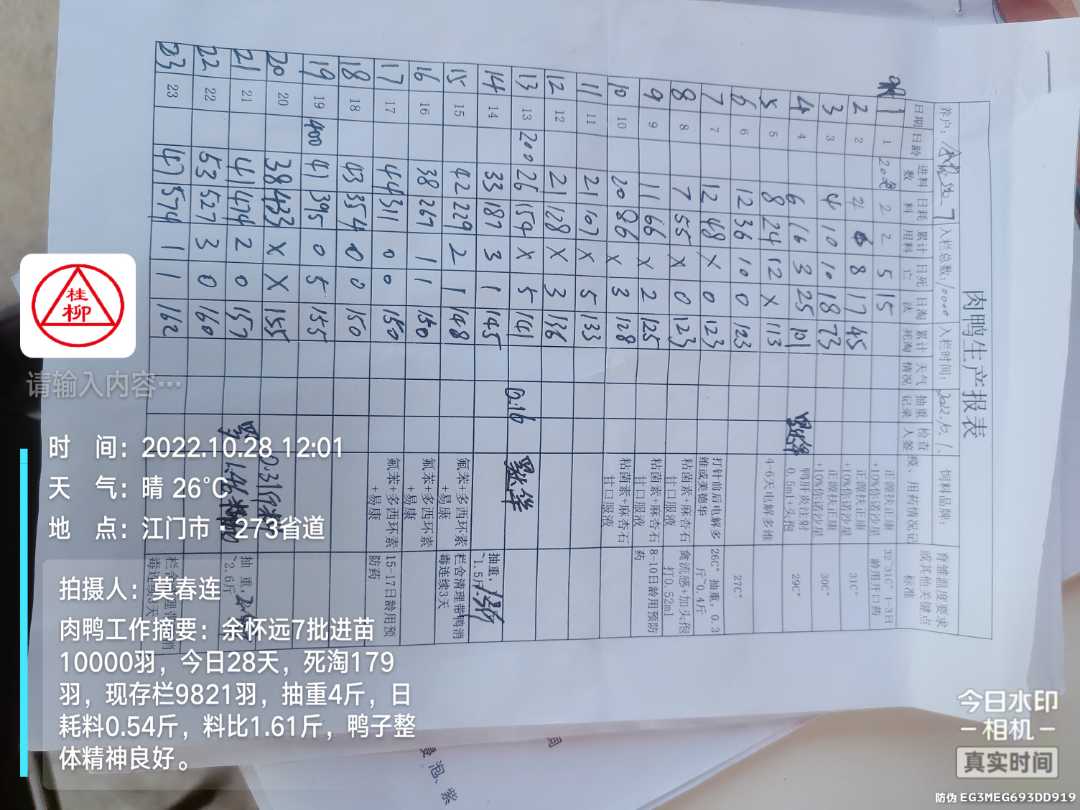 肉鸭生产报表
养户: 7 入栏总数: 10000 入栏时间: 2022.10.1. 饲料品牌:
日期 日龄 进料数 日耗料 累计用料 日死亡 日淘汰 累计死淘 天气情况 抽重记录 检查人签 疫、用药情况记 育雏温度要求或其他关键点
1 1 2 2 5 15 正源扶正康+10%倍诺沙星 标准 32-31C° 1-3日龄用开口药
2 2 4 6 8 17 45 正源扶正康+10%倍诺沙星 31C°
3 3 4 10 10 18 73 正源扶正康+10%倍诺沙星 30C°
4 4 6 16 3 25 101 鸭肝炎注射0.5ml+头孢 29C°
5 5 8 24 12 X 113 4-6天电解多维
6 6 12 36 10 0 123 27C°
7 7 12 48 X 0 123 打针前后电解多维或美德华 26C° 抽重，0.3斤~0.4斤
8 8 7 55 X 0 123 粘菌素+麻杏石甘口服液 禽流感+加头孢打0.52ml
9 9 11 66 X 2 125 粘菌素+麻杏石甘口服液 8-10日龄用预防药
10 10 20 86 X 3 128 粘菌素+麻杏石甘口服液
11 11 21 107 X 5 133
12 12 21 128 X 3 136
13 13 200 26 154 X 5 141 0.16
14 14 33 187 3 1 145 抽重，~1.5斤
15 15 42 229 2 1 148 氟苯+多西环素+易康 栏舍清理带鸭消毒连续3天
16 16 38 267 1 1 150 氟苯+多西环素+易康
17 17 44 311 0 0 150 氟苯+多西环素+易康 15-17日龄用预防药
18 18 43 354 0 0 150
19 19 400 41 395 0 5 155
20 20 38 433 X X 155
21 21 41 474 2 0 157 抽重，~2.6斤
22 22 53 527 3 0 160
23 23 47 574 1 1 162
桂柳
请输入内容···
时 间：2022.10.28 12:01
天 气：晴 26℃
地 点：江门市·273省道
拍摄人：莫春连
肉鸭工作摘要：余怀远7批进苗
10000羽，今日28天，死淘179
羽，现存栏9821羽，抽重4斤，日
耗料0.54斤，料比1.61斤，鸭子整
体精神良好。
今日水印
相机
真实时间
防伪 EG3MEG693DD919